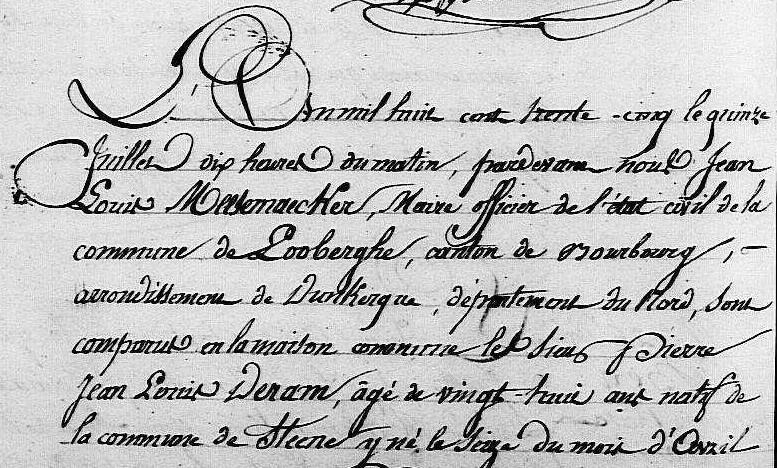 L'an mil huit cent trente-cinq le quinze
Juillet dix heures du matin, pardevant nous Jean
Louis Meesemaecker, Maire officier de l'état civil de la
commune de Looberghe, canton de Bourbourg, -
arrondissement de Dunkerque, département du Nord, sont
comparus en la maison commune le Sieur Pierre
Jean Louis Deram, âgé de vingt-huit ans natif de
la commune de Steene y né le seize du mois d'Avril